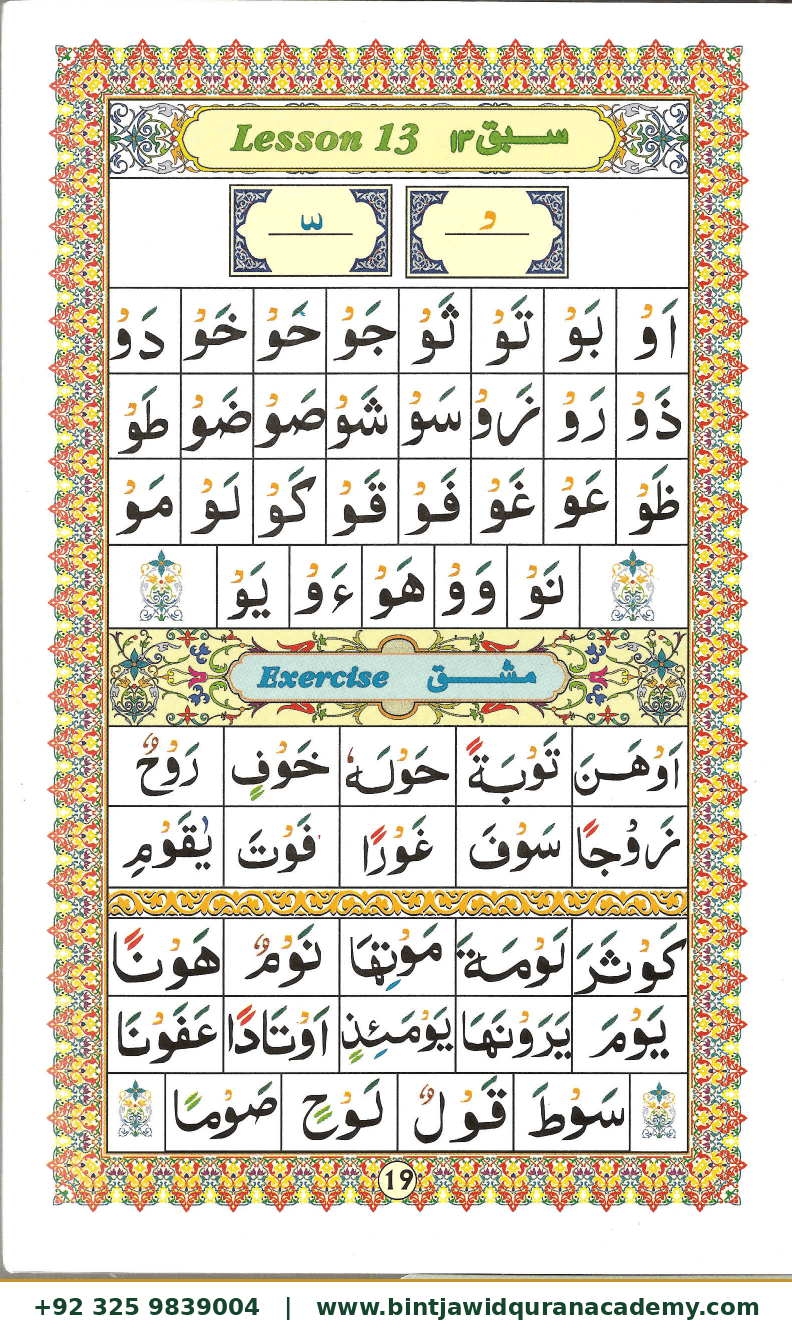 Lesson 13 سبق ۱۳
اَوْ بَوْ تَوْ ثَوْ جَوْ حَوْ خَوْ دَوْ
ذَوْ رَوْ زَوْ سَوْ شَوْ صَوْ ضَوْ طَوْ
ظَوْ عَوْ غَوْ فَوْ قَوْ كَوْ لَوْ مَوْ
نَوْ وَوْ هَوْ ءَوْ يَوْ
Exercise مشق
اَوْهَنَ تَوْبَةً حَوْلَهٗ خَوْفٍ رَوْحٌ
زَوْجًا سَوْفَ غَوْرًا فَوْتَ يٰقَوْمِ
كَوْثَرَ لَوْمَةَ مَوْتِهَا نَوْمٌ هَوْنًا
يَوْمَ يَرَوْنَهَا يَوْمَئِذٍ اَوْتَادًا عَفَوْنَا
سَوْطَ قَوْلٌ لَوْحٍ صَوْمًا
19
+92 325 9839004 | www.bintjawidquranacademy.com